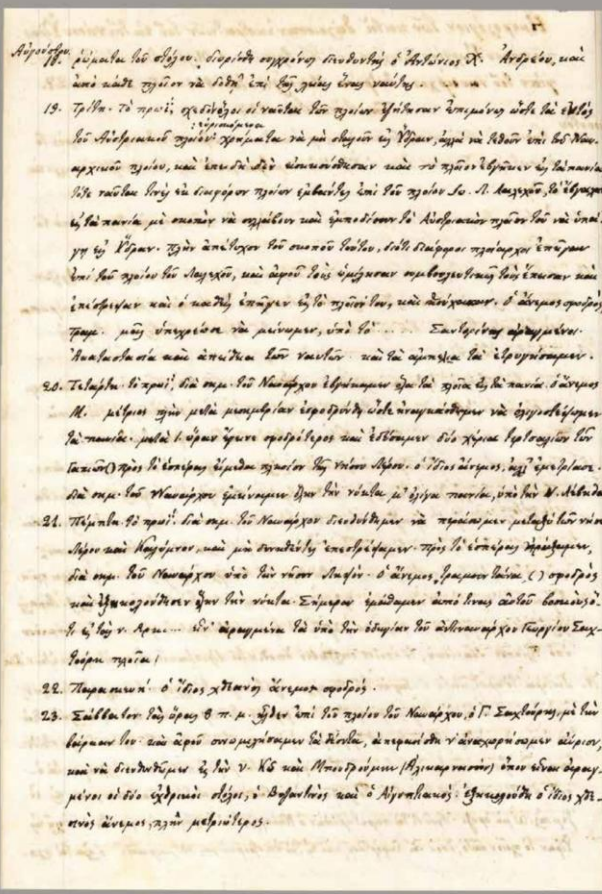 Αὐγούστου.
18. ρώματα τοῦ στόλου. διωρίσθη συγχρόνως διευθυντὴς ὁ Ἀντώνιος Χ. Ἀνδρέου, καὶ
ἀπὸ κάθε πλοῖον νὰ δοθῇ ἐπὶ τῆς ἕνας ναύτης.
19. Τρίτη. τὸ πρωΐ, σχεδὸν ὅλοι οἱ ναῦται τῶν πλοίων ἐζήτησαν ἐπιμόνως ὥστε τὰ ἐντὸς
τοῦ Αὐστριακοῦ πλοίου εὑρισκόμενα χρήματα νὰ μὴ σταλοῦν εἰς Ὕδραν, ἀλλὰ νὰ τεθοῦν ἐπὶ τοῦ Ναυ-
αρχικοῦ πλοίου, καὶ ἐπειδὴ δὲν εἰσηκούσθησαν καὶ τὸ πλοῖον ἐβγῆκεν εἰς τὰ πανία
τότε ναῦται τινὲς ἐκ διαφόρων πλοίων ἐμβάντες ἐπὶ τοῦ πλοίου Λ. Λαλεχοῦ, τὸ ἔβγαλαν
εἰς τὰ πανία μὲ σκοπὸν νὰ συλλάβουν καὶ ἐμποδίσουν τὸ Αὐστριακὸν πλοῖον τοῦ νὰ ὑπά-
γῃ εἰς Ὕδραν. πλὴν ἀπέτυχον τοῦ σκοποῦ τούτου, διότι διάφοροι πλοίαρχοι ἐπῆγαν
ἐπὶ τοῦ πλοίου τοῦ Λαλεχοῦ, καὶ ἀφοῦ τοὺς ὡμίλησαν συμβουλευτικῶς τοὺς ἔπεισαν καὶ
ἐπέστρεψαν καὶ ὁ καθεὶς ἐπῆγεν εἰς τὸ πλοῖόν του, καὶ ἡσύχασαν. ὁ ἄνεμος σφοδρὸς
τραμ. μᾶς ὑπεχρέωσε νὰ μείνωμεν, ὑπὸ τὸ ... Σαντορίνης ἀραγμένοι.
Ἀκαταστασία καὶ ἀπείθεια τῶν ναυτῶν καὶ τὰ ἀμπέλια τὰ ἐτρυγήσαμεν.
20. Τετάρτη. τὸ πρωΐ, διὰ σημ. τοῦ Ναυάρχου ἐβγήκαμεν ὅλα τὰ πλοῖα εἰς τὰ πανία. ὁ ἄνεμος
Μ. μέτριος πλὴν μετὰ μεσημβρίαν ἐσφοδρύνθη ὥστε ἀναγκάσθημεν νὰ ὀλιγοστεύσωμεν
τὰ πανία. μετὰ 1. ὥραν ἔγεινε σφοδρότερος καὶ ἐδέσαμεν δύο χέρια τῶν
Γαπιῶν() πρὸς τὸ ἑσπέρας εἴμεθα πλησίον τῆς νήσου Λέρου. ὁ ἴδιος ἄνεμος, ἀλλ' ἐμετρίασε.
διὰ σημ. τοῦ Ναυάρχου ἐμείναμεν ὅλην τὴν νύκτα μ' ὀλίγα πανία, ὑπὸ τὴν Ν. Λέβιθα
21. Πέμπτη. τὸ πρωΐ. διὰ σημ. τοῦ Ναυάρχου διευθύνθημεν νὰ περάσωμεν μεταξὺ τῶν νήσων
Λέρου καὶ Καλύμνου, καὶ μὴ δυνηθέντες ἐπεστρέψαμεν. πρὸς τὸ ἑσπέρας ἠράξαμεν,
διὰ σημ. τοῦ Ναυάρχου ὑπὸ τὴν νῆσον Λειψόν. ὁ ἄνεμος τραμουντάνα, () σφοδρὸς
καὶ ἐξηκολούθησεν ὅλην τὴν νύκτα. Σήμερον ἐμάθαμεν ἀπό τινας αὐτοῦ βοσκοὺς ὅ-
τι εἰς τὴν ν. Ἀρκι... εἶν' ἀραγμένα τὰ ὑπὸ τὴν ὁδηγίαν τοῦ ἀντιναυάρχου Γεωργίου Σαχ-
τούρη πλοῖα.
22. Παρασκευή. ὁ ἴδιος χθεσινὸς ἄνεμος σφοδρός.
23. Σάββατον. τὰς ὥρας 8 π. μ. ἦλθεν ἐπὶ τοῦ πλοίου τοῦ Ναυάρχου, ὁ Γ. Σαχτούρης, μὲ τὴν
βάρκαν του. καὶ ἀφοῦ συνωμιλήσαμεν τὰ δέοντα, ἀπεφασίσθη ν' ἀναχωρήσωμεν αὔριον,
καὶ νὰ διευθυνθῶμεν εἰς τὴν ν. Κῶ καὶ Μποδρούμιον (Ἁλικαρνασσὸν) ὅπου εἶναι ἀραγ-
μένοι οἱ δύο ἐχθρικοὶ στόλοι, ὁ Βυζαντινὸς καὶ ὁ Αἰγυπτιακός. ἐξηκολούθει ὁ ἴδιος χθε-
σινὸς ἄνεμος, πλὴν μετριώτερος.